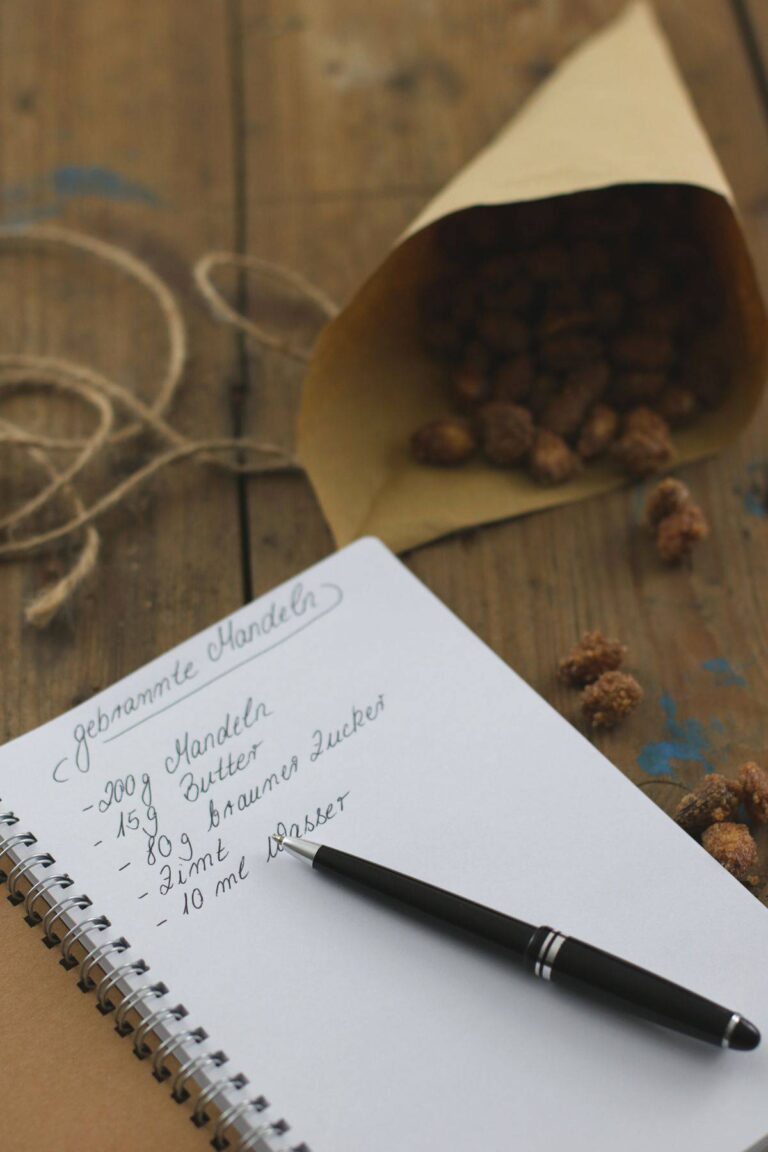 gebrannte Mandeln
- 200g Mandeln
- 15g Butter
- 80g brauner Zucker
- Zimt
- 10 ml Wasser